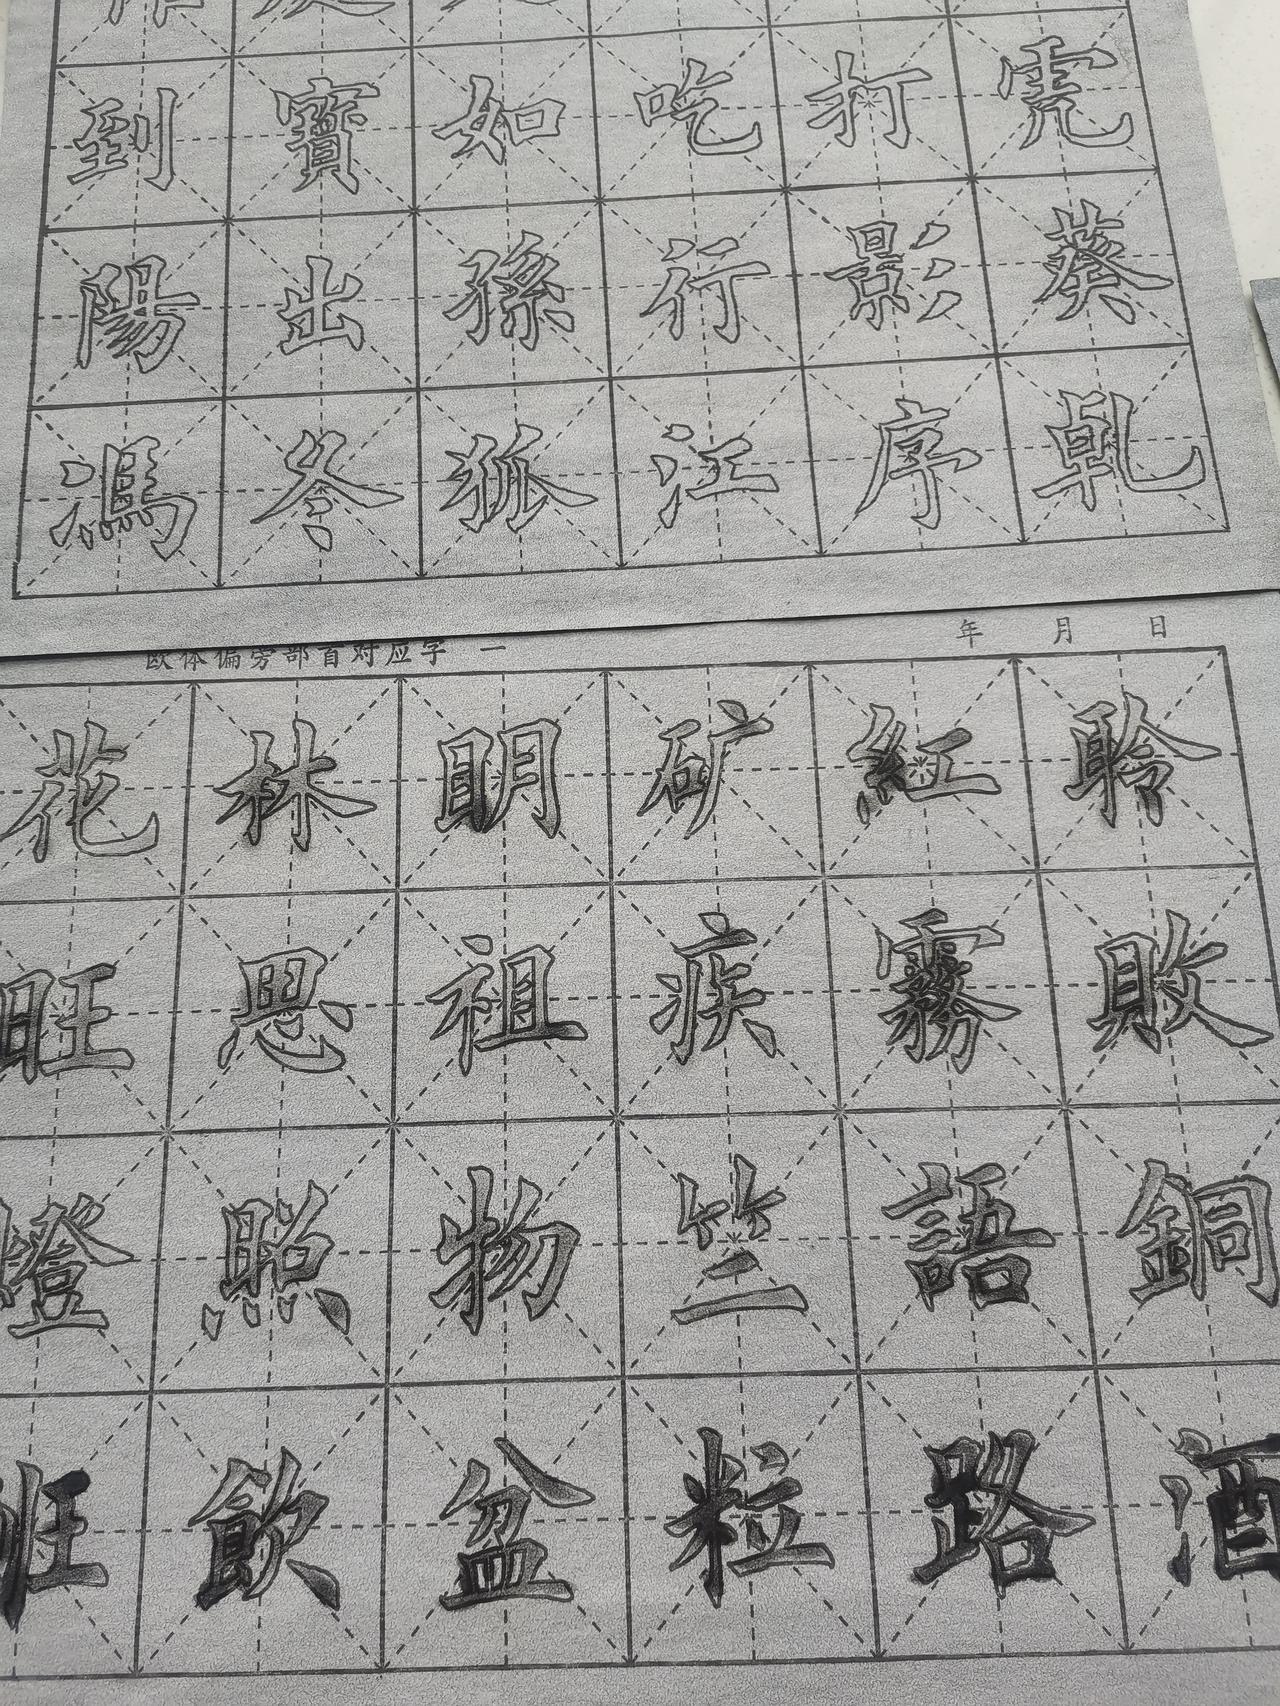 到寳如吃打
陽出孫行影葵
馮冬狐江序乹
欧体偏旁部首对应字 一 年 月 日
花林明矿紅聆
旺思祖疾霧敗
燈照物竺語銅
班飲盆粒路酒